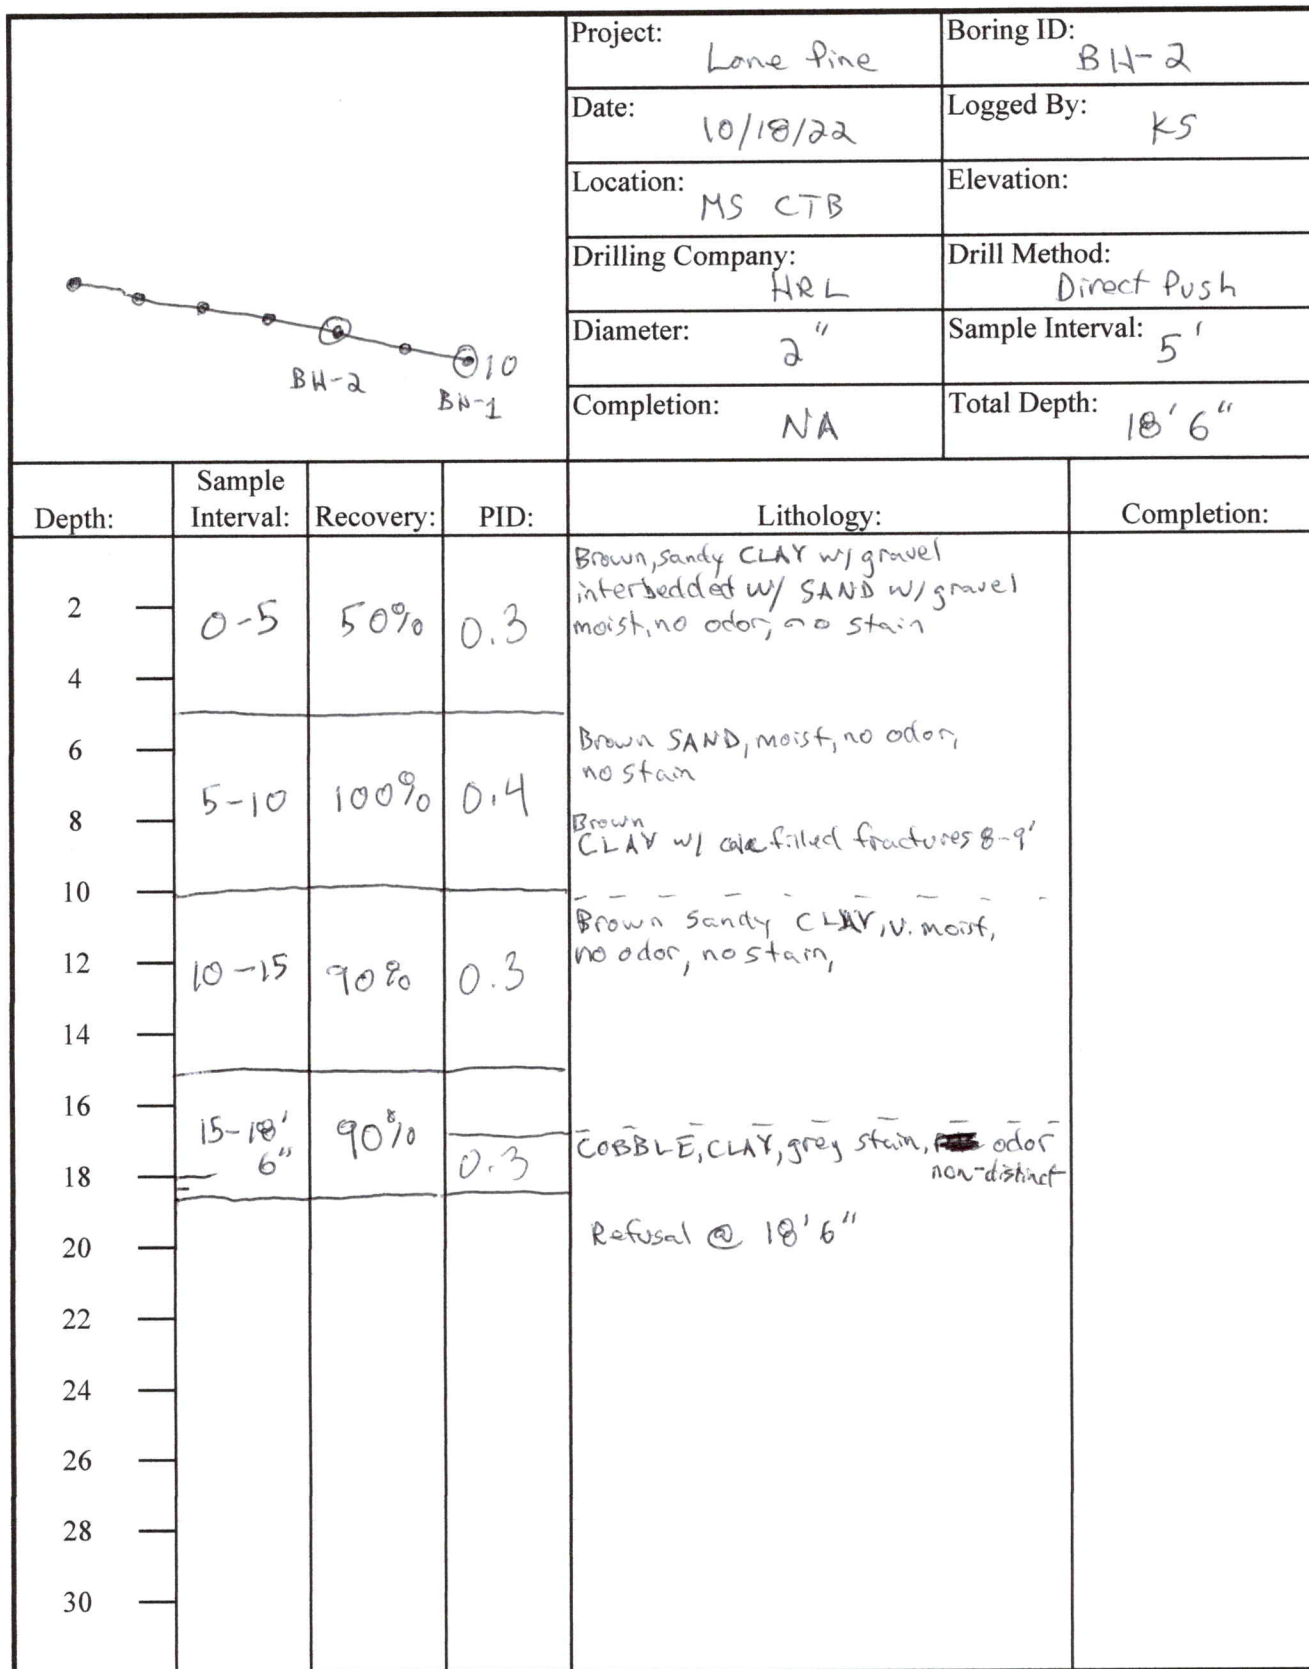 Project: Lone Pine
Boring ID: BH-2
Date: 10/18/22
Logged By: KS
Location: MS CTB
Elevation:
Drilling Company: HRL
Drill Method: Direct Push
Diameter: 2"
Sample Interval: 5'
Completion: NA
Total Depth: 18' 6"
BH-2
BH-1
10
Depth:
Sample
Interval:
Recovery:
PID:
Lithology:
Completion:
2
4
6
8
10
12
14
16
18
20
22
24
26
28
30
0-5 50% 0.3
Brown, sandy CLAY w/ gravel
interbedded w/ SAND w/ gravel
moist, no odor, no stain
5-10 100% 0.4
Brown SAND, moist, no odor,
no stain
Brown
CLAY w/ filled fractures 8-9'
10-15 90% 0.3
Brown Sandy CLAY, v. moist,
no odor, no stain,
15-18' 90%
6"
0.3
COBBLE, CLAY, grey stain, odor
non-distinct
Refusal @ 18' 6"